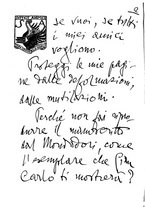 2
se vuoi, se tutti
i miei amici
vogliono.
Proteggi le mie pagi-
ne dalle deformazioni,
dalle mutilazioni.
Perché non fai
durre il manoscritto
dal Mondadori, come
l'esemplare che Gian
Carlo ti mostrerà?